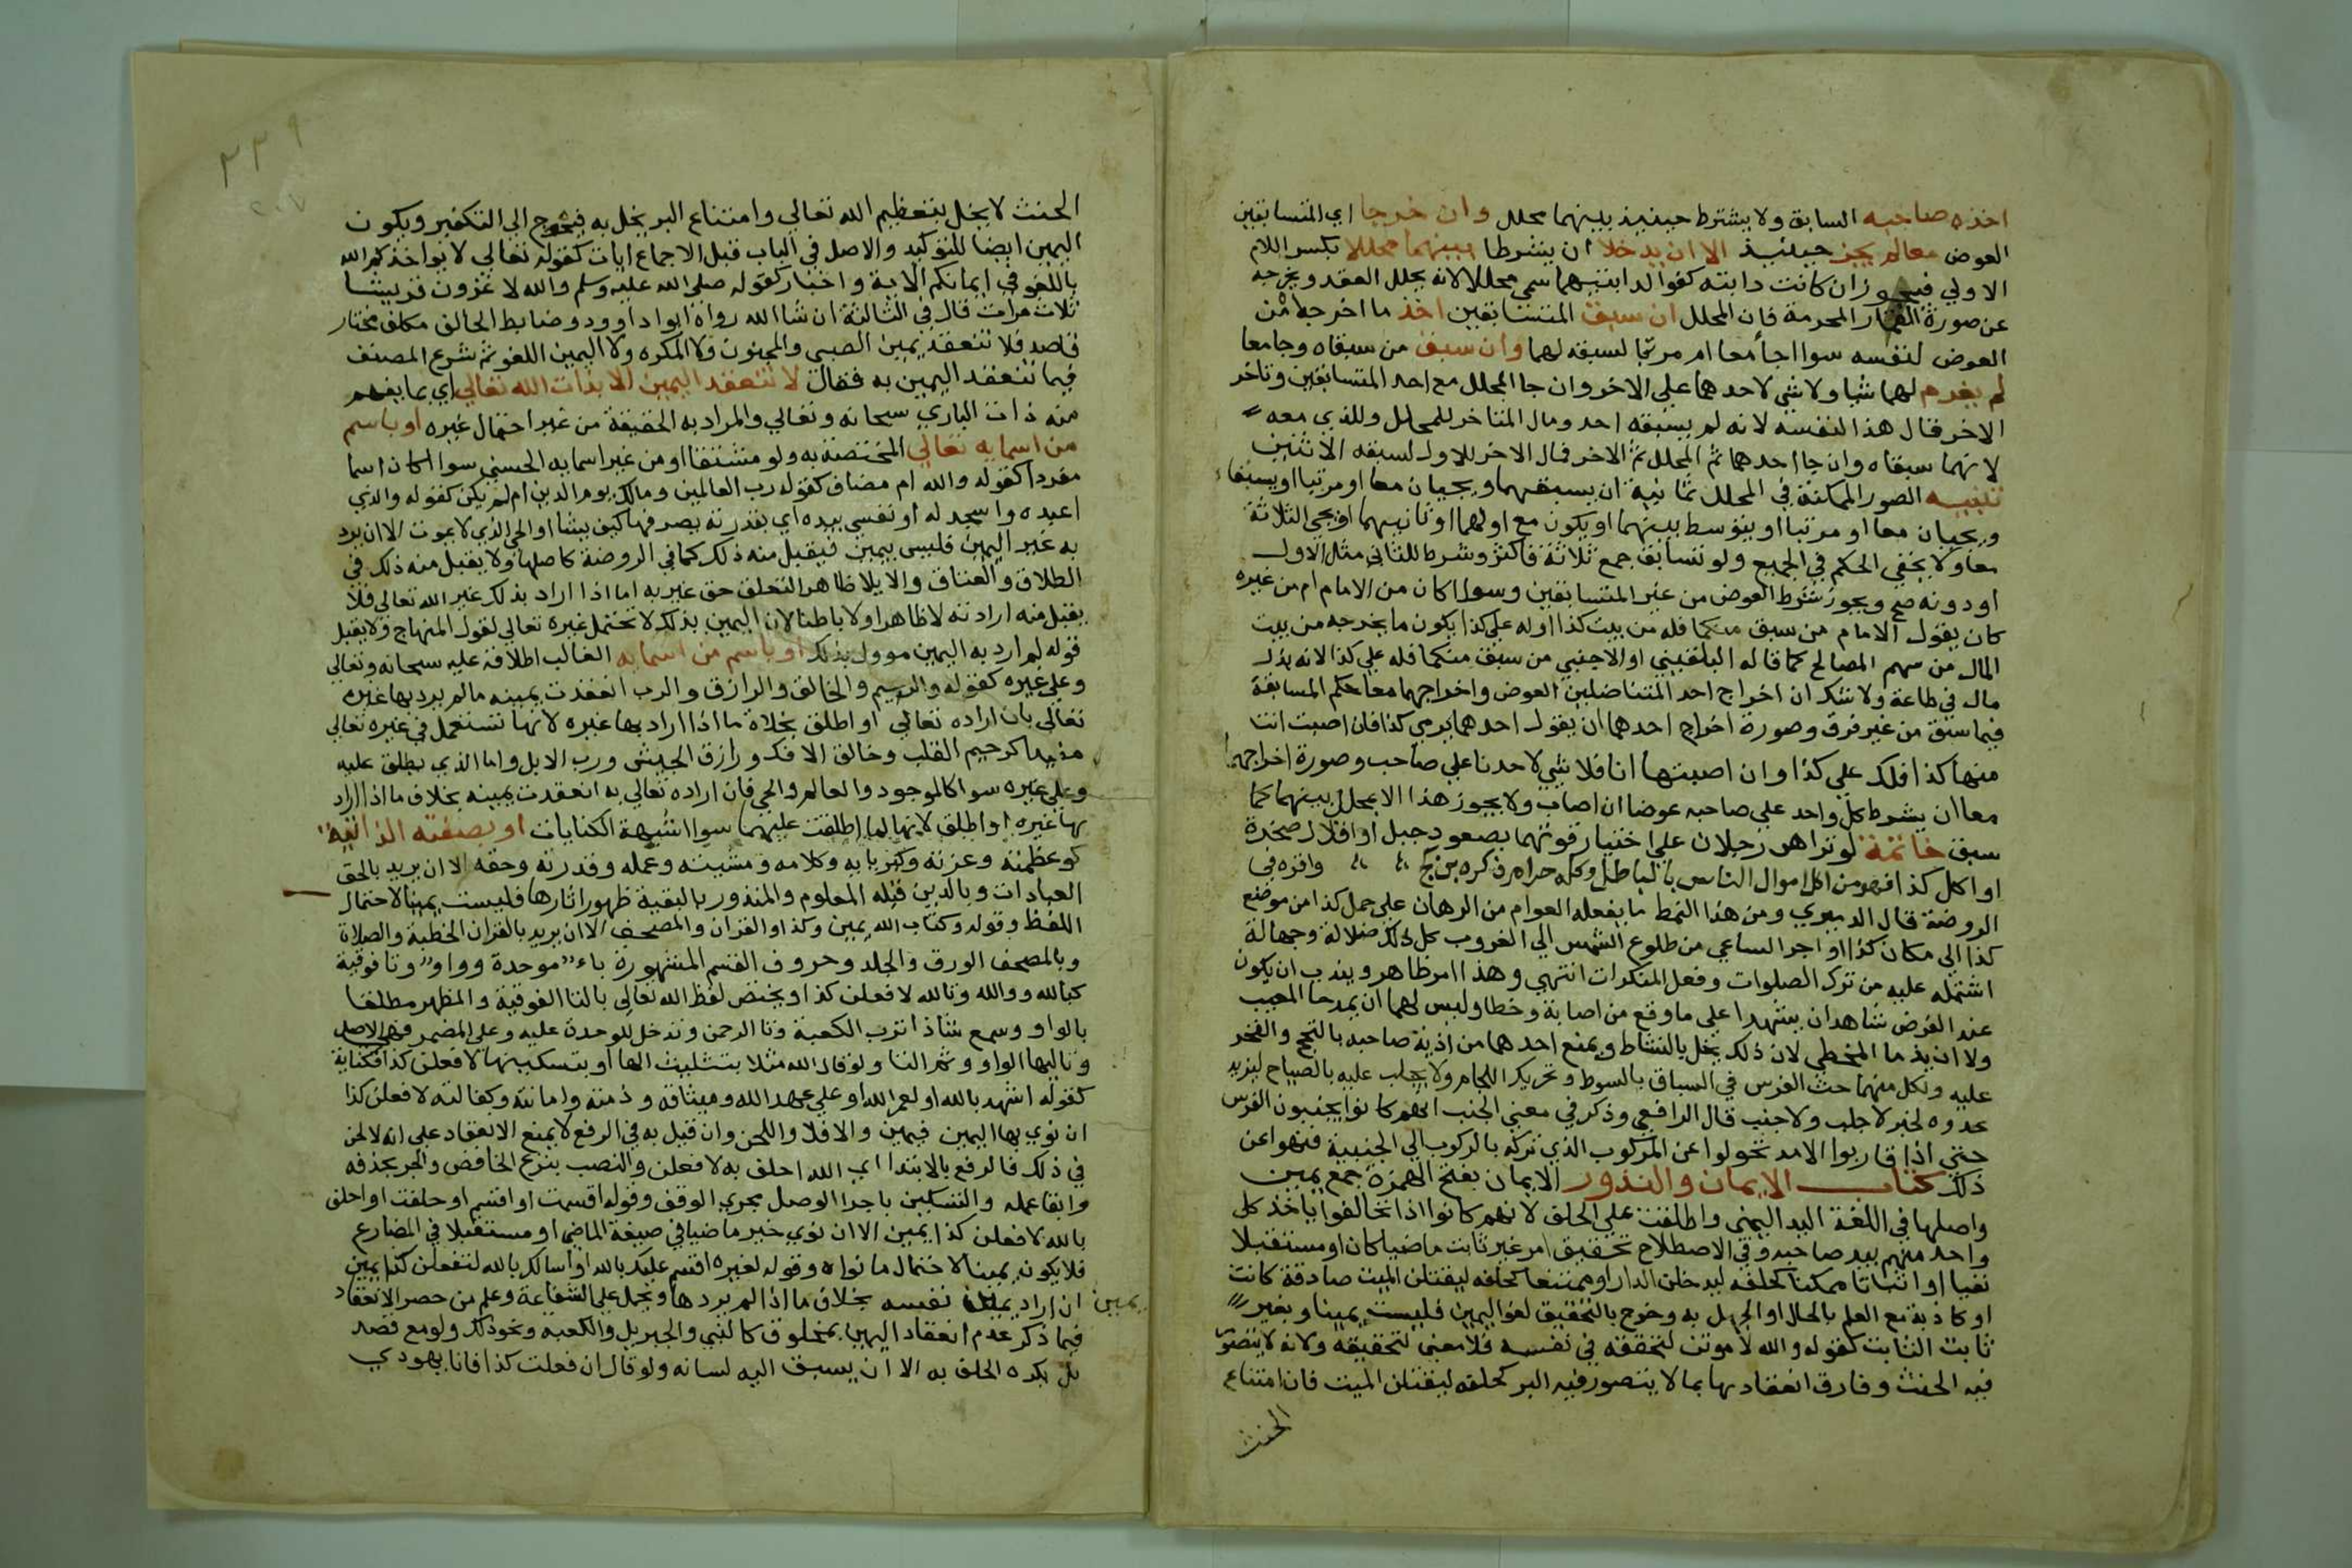 اخذه صاحبه السابق ولا يشترط حينيذ بينهما محلل وان خرجا اي المتسابقين
العوض معا لم يجز حينيذ الا ان يدخلا ان يشرطا بينهما محللا بكسر اللام
الاولي فيجوز ان كانت دابته كفوا لدابتيهما سمي محللا لانه يحلل العقد ويخرجه
عن صورة القمار المحرمة فان المحلل ان سبق المتسابقين اخذ ما اخرجاه من
العوض لنفسه سوا اجا معا ام مرتبا لسبقه لهما وان سبق من سبقاه وجا معا
لم يغرم لهما شيا ولا شي لاحدهما علي الاخر وان جا المحلل مع احد المتسابقين وتاخر
الاخر فمال هذا لنفسه لانه لم يسبقه احد ومال المتاخر للمحلل وللذي معه
لانهما سبقاه وان جا احدهما ثم المحلل ثم الاخر فمال الاخر للاول لسبقه الاثنين
تنبيه الصور الممكنة في المحلل ثمانية ان يسبقهما ويجيان معا او مرتبا او يسبقاه
ويجيان معا او مرتبا او يتوسط بينهما او يكون مع اولهما او ثانيهما او يجي الثلاثة
معا ولا يخفي الحكم في الجميع ولو تسابق جمع ثلاثة فاكثر وشرط للثاني مثل الاول
او دونه صح ويجوز شرط العوض من غير المتسابقين وسوا كان من الامام ام من غيره
كان يقول الامام من سبق منكما فله من بيت كذا او له علي كذا يكون ما يخرجه من بيت
المال من سهم المصالح كما قاله البلقيني او الاجنبي من سبق منكما فله علي كذا لانه بذل
مال في طاعة ولا شك ان اخراج احد المتناضلين العوض واخراجهما معا حكم المسابقة
فيما سبق من غير فرق وصورة اخراج احدهما ان يقول احدهما نرمي كذا فان اصبت انت
منها كذا فلك علي كذا وان اصبتها انا فلا شي لاحدنا علي صاحب وصورة اخراجهما
معا ان يشرط كل واحد علي صاحبه عوضا ان اصاب ولا يجوز هذا الا بمحلل بينهما كما
سبق خاتمة لو تراهن رجلان علي اختيار قوتهما بصعود جبل او اقلال صخرة
او اكل كذا فهو من اكل اموال الناس بالباطل وكله حرام ذكره بن كج واقره في
الروضة قال الدميري ومن هذا النمط ما يفعله العوام من الرهان علي حمل كذا من موضع
كذا الي مكان كذا او اجرا الساعي من طلوع الشمس الي الغروب كل ذلك ضلالة وجهالة
اشتمله عليه من ترك الصلوات وفعل المنكرات انتهي وهذا امر ظاهر ويندب ان يكون
عند الغرض شاهدان يشهدا علي ما وقع من اصابة وخطا وليس لهما ان يمدحا المصيب
ولا ان يذما المخطي لان ذلك يخل بالنشاط ويمنع احدهما من اذية صاحبه بالتبجح والفخر
عليه ولكل منهما حث الفرس في السباق بالسوط وتحريك اللجام ولا يجلب عليه بالصياح ليزيد
عدوه لخبر لا جلب ولا جنب قال الرافعي وذكر في معني الجنب انهم كانوا يجنبون الفرس
حتي اذا قاربوا الامد تحولوا عن المركوب الذي تركه بالركوب الي الجنيبة فنهوا عن
ذلك كتاب الايمان والنذور الايمان بفتح الهمزة جمع يمين
واصلها في اللغة اليد اليمني واطلقت علي الحلف لانهم كانوا اذا تحالفوا ياخذ كل
واحد منهم بيد صاحبه وفي الاصطلاح تحقيق امر غير ثابت ماضيا كان او مستقبلا
نفيا او اثباتا ممكنا كحلفه ليدخلن الدار او ممتنعا كحلفه ليقتلن الميت صادقة كانت
او كاذبة مع العلم بالحال او الجهل به وخرج بالتحقيق لغو اليمين فليست يمينا وبغير
ثابت الثابت كقوله والله لاموتن لتحققه في نفسه فلا معني لتحقيقه ولانه لا يتصور
فيه الحنث وفارق انعقادها بما لا يتصور فيه البر كحلفه ليقتلن الميت فان امتناع
الحنث
٣٣٩
٢٠٧
الحنث لا يخل بتعظيم الله تعالي وامتناع البر يخل به فيحوج الي التكفير ويكون
اليمين ايضا للتوكيد والاصل في الباب قبل الاجماع ايات كقوله تعالي لا يواخذكم الله
باللغو في ايمانكم الاية واخبار كقوله صلي الله عليه وسلم والله لا غزون قريشا
ثلاث مرات قال في الثالثة ان شا الله رواه ابوا داوود وضابط الحالف مكلف مختار
قاصد فلا تنعقد يمين الصبي والمجنون ولا المكره ولا اليمين اللغو ثم شرع المصنف
فيما تنعقد اليمين به فقال لا تنعقد اليمين الا بذات الله تعالي اي بما يفهم
منه ذات الباري سبحانه وتعالي والمراد به الحقيقة من غير احتمال غيره او باسم
من اسمايه تعالي المختصة به ولو مشتقا او من غير اسمايه الحسني سوا اكان اسما
مفردا كقوله والله ام مضاف كقوله رب العالمين ومالك يوم الدين ام لم يكن كقوله والذي
اعبده واسجد له او نفسي بيده اي بقدرته يصرفها كيف يشا او الحي الذي لا يموت الا ان يرد
به غير اليمين فليس بيمين فيقبل منه ذلك كما في الروضة كاصلها ولا يقبل منه ذلك في
الطلاق والعتاق والايلا ظاهر التعلق حق غير به اما اذا اراد بذلك غير الله تعالي فلا
يقبل منه ارادته لا ظاهرا ولا باطنا لان اليمين بذلك لا تحتمل غيره تعالي لقول المنهاج ولا يقبل
قوله لم ارد به اليمين موول بذلك او باسم من اسمايه الغالب اطلاقه عليه سبحانه وتعالي
وعلي غيره كقوله والرحيم والخالق والرازق والرب انعقدت يمينه ما لم يرد بها غيره
تعالي بان اراده تعالي او اطلق بخلاف ما اذا اراد بها غيره لانها تستعمل في غيره تعالي
مقيدا كرحيم القلب وخالق الافك ورازق الجيش ورب الابل واما الذي يطلق عليه
وعلي غيره سوا كالموجود والعالم والحي فان اراده تعالي به انعقدت يمينه بخلاف ما اذا اراد
بها غيره او اطلق لانها لما اطلقت عليهما سوا اشبهة الكنايات او بصفته الذاتية
كوعظمته وعزته وكبريايه وكلامه ومشيته وعلمه وقدرته وحقه الا ان يريد بالحق
العبادات وبالذين قبله المعلوم والمقدور بالبقية ظهور اثارها فليست يمينا لاحتمال
اللفظ وقوله وكتاب الله يمين وكذا والقران والمصحف الا ان يريد بالقران الخطبة والصلاة
وبالمصحف الورق والجلد وحروف القسم المشهورة باء موحدة وواو وتا فوقية
كبالله ووالله وتالله لافعلن كذا ويختص لفظ الله تعالي بالتا الفوقية والمظهر مطلقا
بالواو وسمع شاذا ترب الكعبة وتا الرحمن وتدخل الموحدة عليه وعلي المضمر فهي الاصل
وتاليها الواو وثم التا ولو قال الله مثلا بتثليث الها او بتسكينها لافعلن كذا فكناية
كقوله اشهد بالله او لعمر الله او علي عهد الله وميثاقه وذمته وامانته وكفالته لافعلن كذا
ان نوي بها اليمين فيمين والا فلا واللحن وان قيل به في الرفع لا يمنع الانعقاد علي انه لا لحن
في ذلك فالرفع بالابتدا اي الله احلف به لافعلن والنصب بنزع الخافض والجر بحذفه
وابقا عمله والتسكين باجرا الوصل مجري الوقف وقوله اقسمت او اقسم او حلفت او احلف
بالله لافعلن كذا يمين الا ان نوي خبر ماضيا في صيغة الماضي او مستقبلا في المضارع
فلا يكون يمينا لاحتمال ما نواه وقوله لغيره اقسم عليك بالله او اسالك بالله لتفعلن كذا يمين
ان اراد يمين نفسه بخلاف ما اذا لم يردها ويحمل علي الشفاعة وعلم من حصر الانعقاد
يمين
فيما ذكر عدم انعقاد اليمين بمخلوق كالنبي والجبريل والكعبة ونحو ذلك ولو مع قصد
بل يكره الحلف به الا ان يسبق اليه لسانه ولو قال ان فعلت كذا فانا يهودي